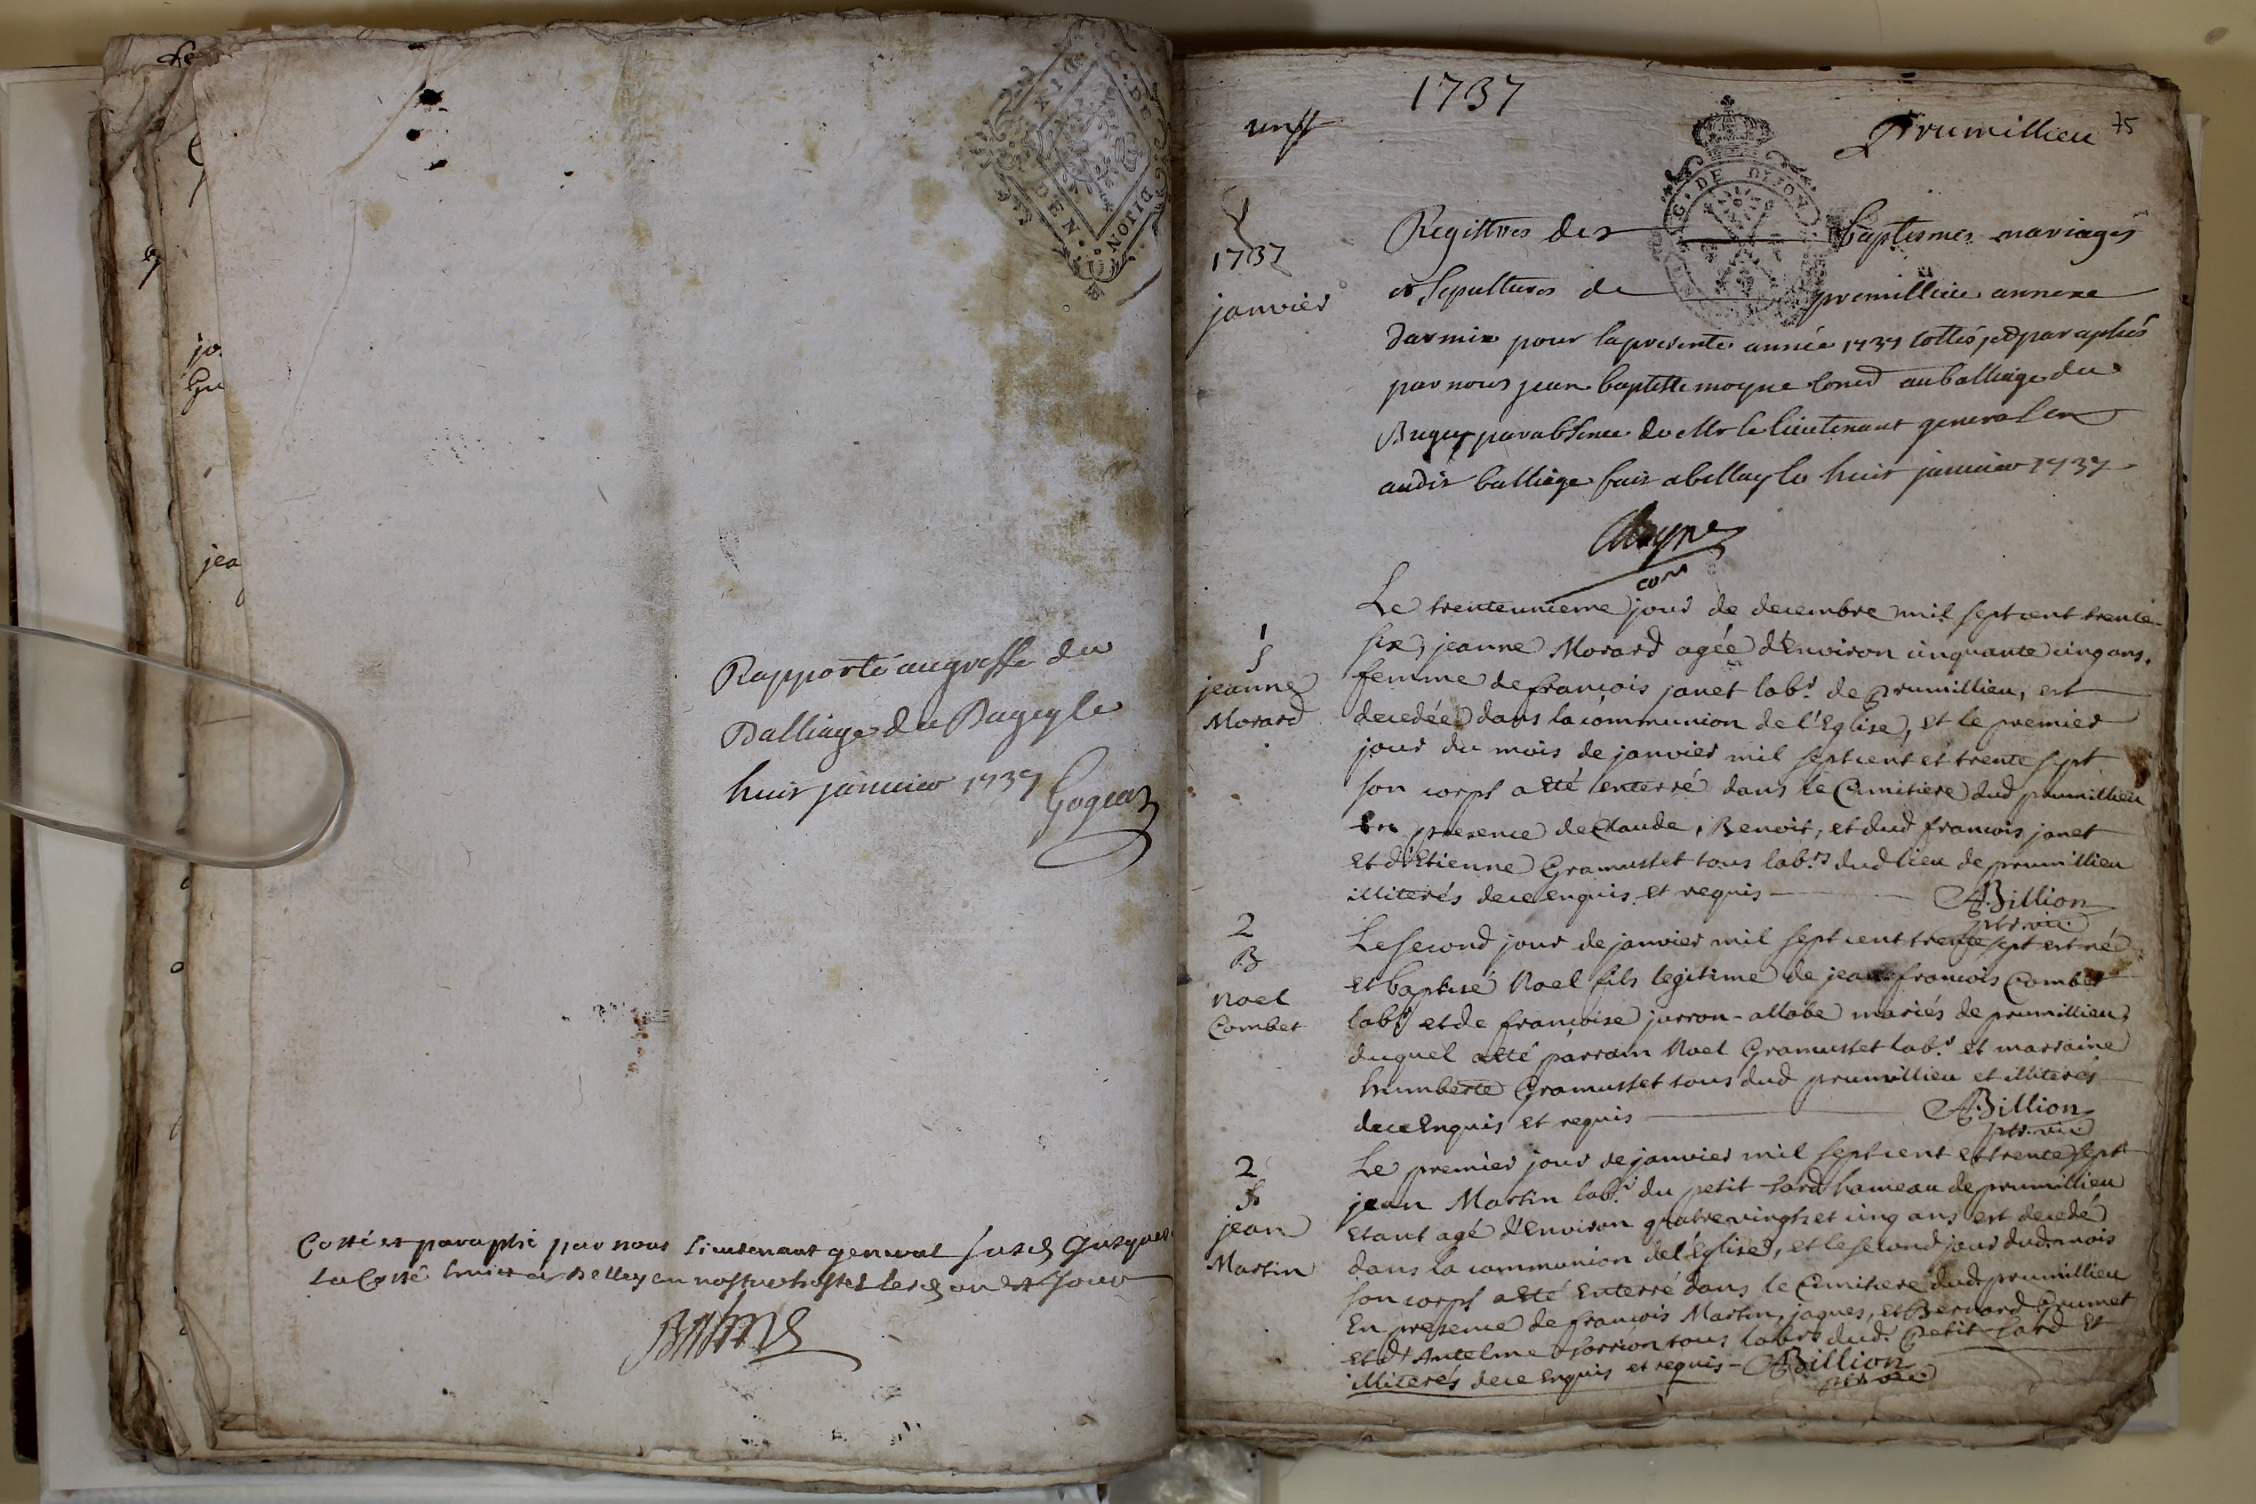 Rapporté au greffe du
Balliage du Bugey le
huit janvier 1737
Cotté et paraphé par nous Lieutenant general susd jusques
la Cotte huict a Belley en nostre hostel les d an et jour
DE DIJON
1737
75
Prumillieu
G. DE DIJON
1737
janvier
Registres des baptesmes mariages
et sepultures de premillieu annexe
darmix pour la presente année 1737 cottés et paraphés
par nous jean baptiste moyne Coner au balliage du
Bugey par absence de Mr le lieutenant general en
audit balliage fait a bellay le huit janvier 1737
Moyne
con
1
S
jeanne
Morard
Le trenteunieme jour de decembre mil sept cent trente
six, jeanne Morard agée d'Environ cinquante cinq ans.
femme de françois janet labr. de prumillieu, est
decedée dans la communion de l'Eglise, et le premier
jour du mois de janvier mil sept cent et trente sept
son corps a Eté enterré dans le Cimitiere dud prumillieu
En presence de Claude, Benoit, et dud françois janet
Et d'Etienne Gramusset tous labrs dud lieu de prumillieu
illiterés de ce enquis et requis
ABillion
ptr vic
2
B
Noel
Combet
Le second jour de janvier mil sept cent trente sept est né
et baptisé Noel fils legitime de jean françois Combet
labr et de françoise jarron-allobe mariés de prumillieu,
duquel a Eté parrain Noel Gramusset labr. et marraine
humberte Gramusset tous dud prumillieu et illiterés
de ce Enquis et requis
ABillion
ptr vic
2
S
jean
Martin
Le premier jour de janvier mil sept cent et trente sept
jean Martin labr. du petit hameau de prumillieu
Etant agé d'Environ quatre vingts et cinq ans est decedé
dans la communion de l'Eglise, et le second jour dud mois
son corps a Eté Enterré dans le Cimitiere dud prumillieu
En presence de françois Martin, jaques, et Bernard Brumet
et d'Antelme tous labrs dud. Petit et
illiterés de ce Enquis et requis - ABillion
ptr vic